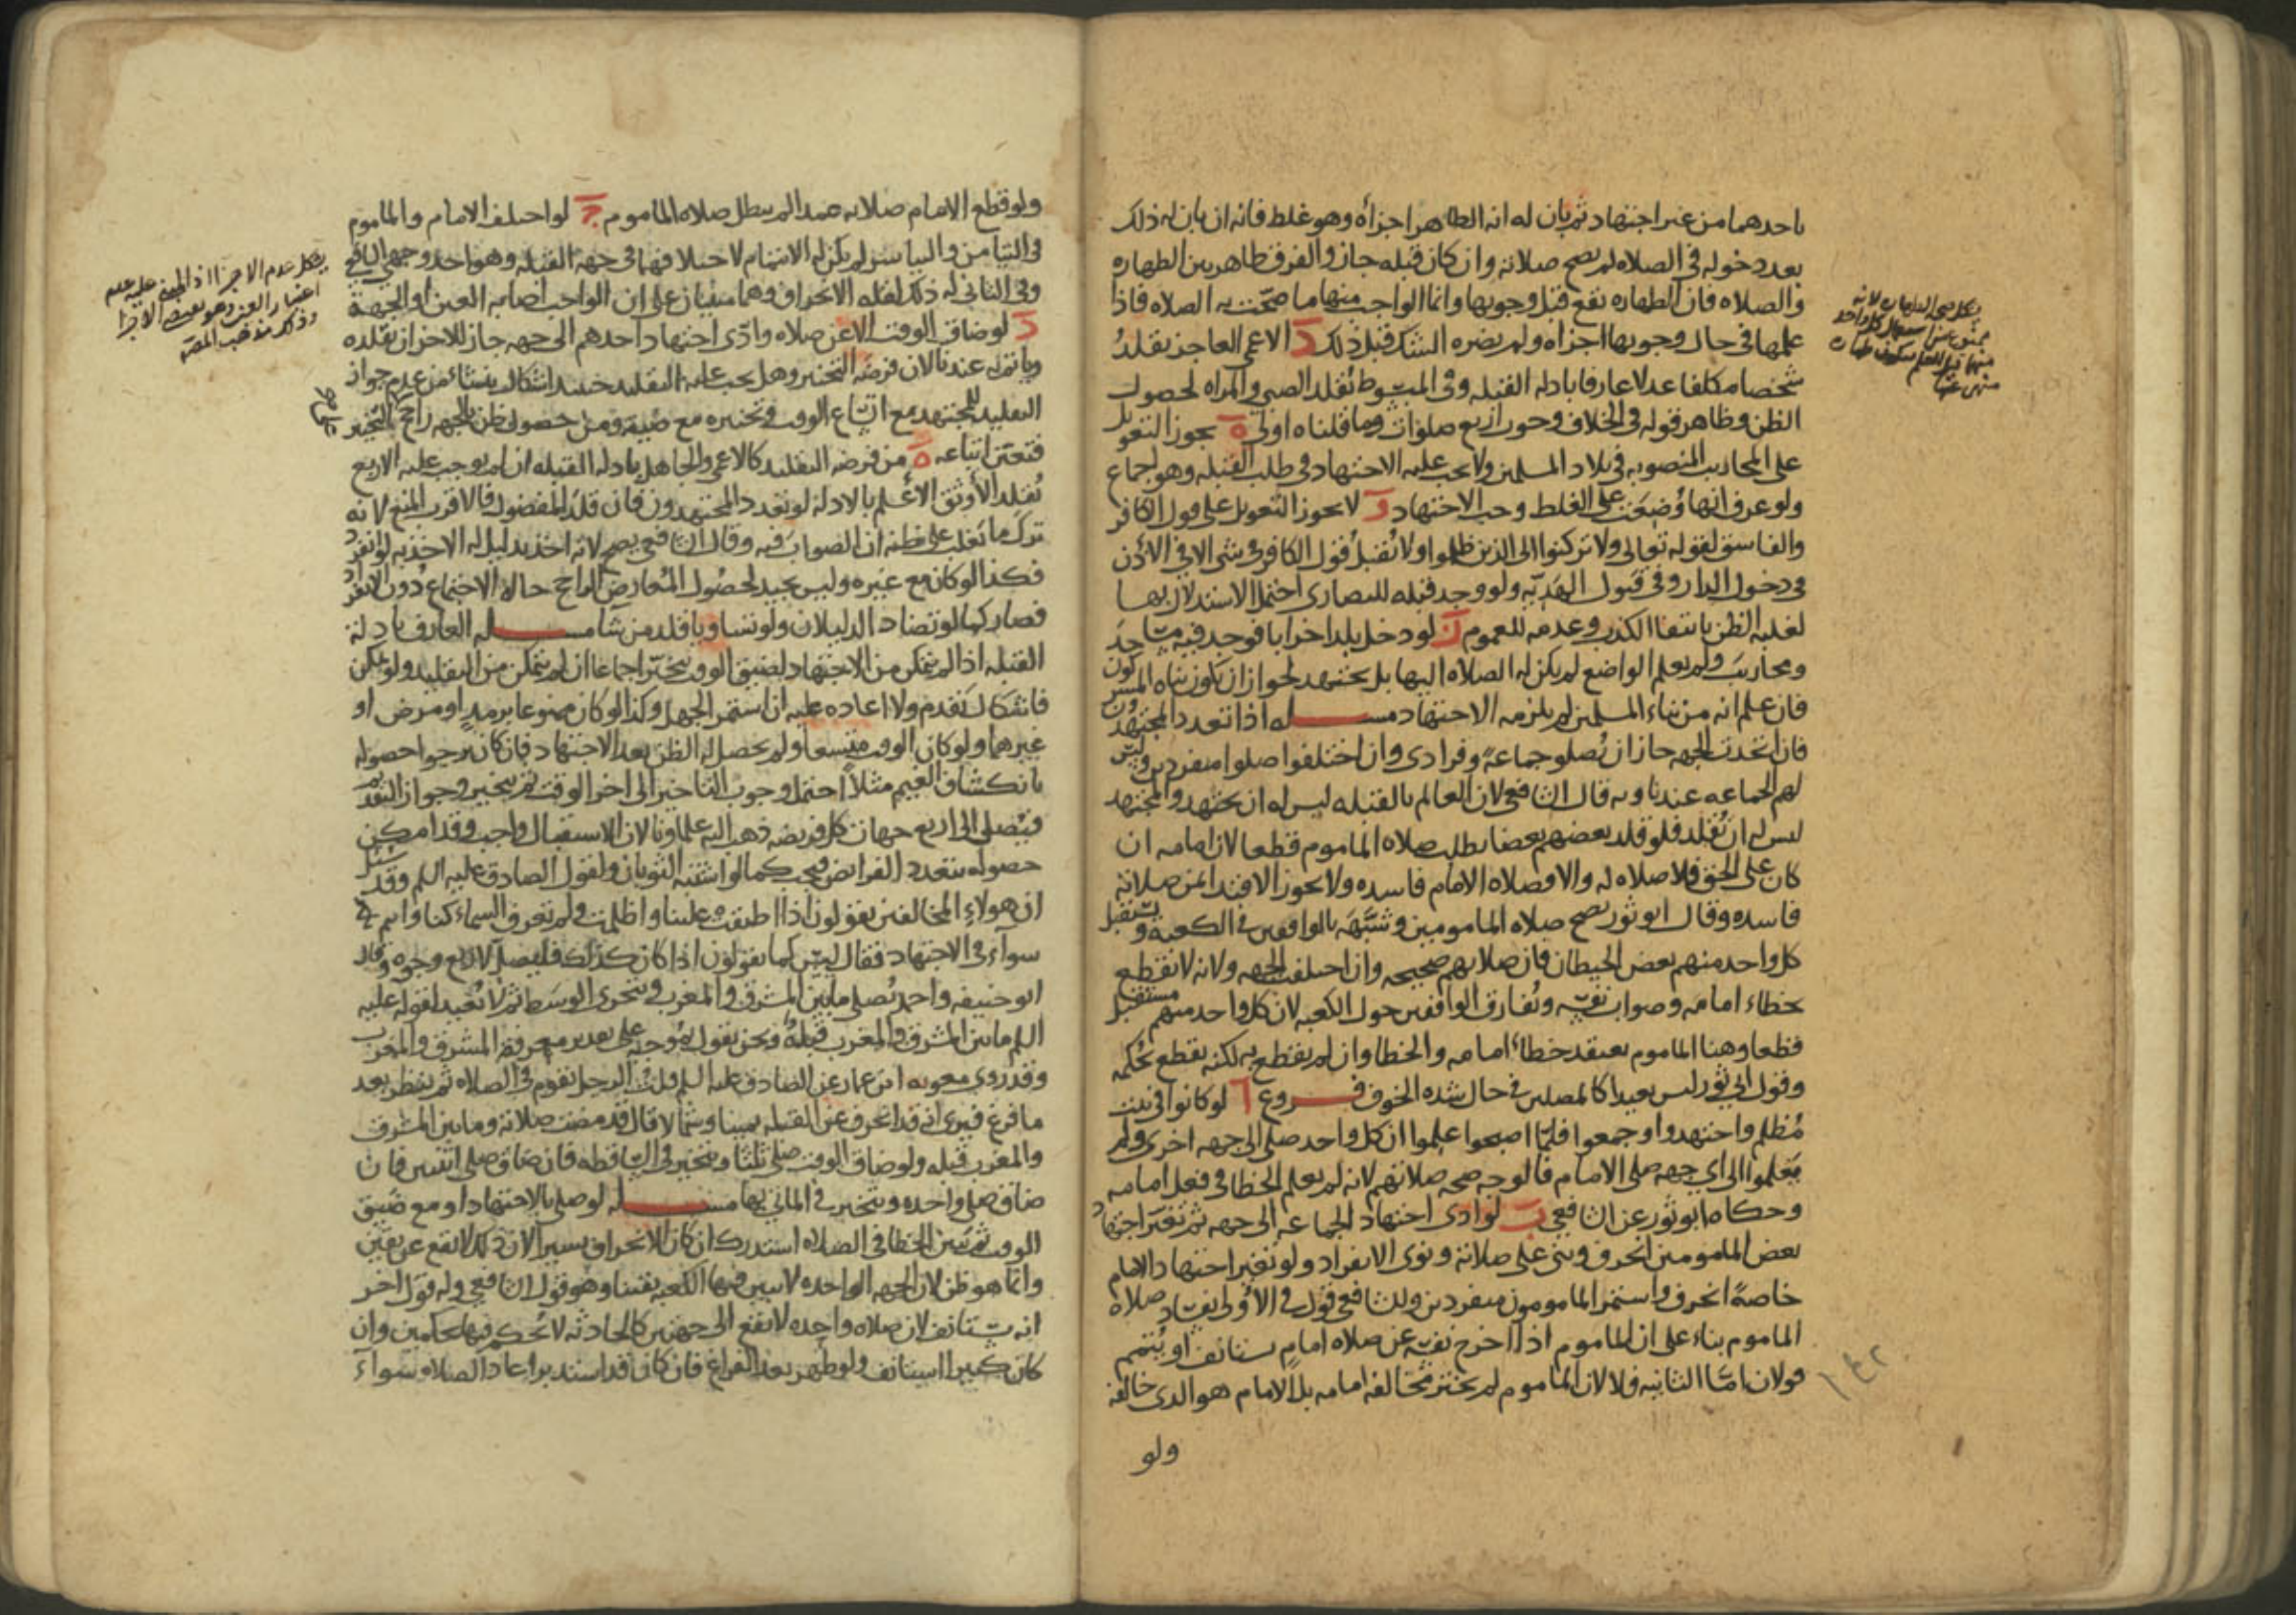 باحدهما من غير اجتهاد ثم بان له انه الطاهر اجزأه وهو غلط فانه ان بان له ذلك
بعد دخوله في الصلاه لم يصح صلاته وان كان قبله جاز والفرق ظاهر بين الطهاره
والصلاه فان الطهاره تقع قبل وجوبها وانما الواجب منها ما صحت به الصلاه فاذا
علمها في حال وجوبها اجزاه ولم يضره الشك قبل ذلك د الاعمى العاجز يقلد
شخصا مكلفا عدلا عارفا بادله القبله وفي المبسوط تقلد الصبي والمراه لحصول
الظن وظاهر قوله في الخلاف وجوب اربع صلوات وما قلناه اولى ه يجوز التعويل
على المحاريب المنصوبه في بلاد المسلمين ولا يجب عليه الاجتهاد في طلب القبله وهو اجماع
ولو عرف انها وضعت على الغلط وجب الاجتهاد و لا يجوز التعويل على قول الكافر
والفاسق لقوله تعالى ولا تركنوا الى الذين ظلموا ولا تقبل قول الكافر في شي الا في الاذن
في دخول الدار وفي قبول الهديه ولو وجد قبله للنصارى احتمل الاستدلال بها
لغلبه الظن بانتفا الكذب وعدمه للعموم ز لو دخل بلدا خرابا فوجد فيه مساجد
ومحاريب ولم يعلم الواضع لم يكن له الصلاه اليها بل يجتهد لجواز ان يكون بناه المشركون
فان علم انه من بناء المسلمين لم يلزمه الاجتهاد مسـله اذا تعدد المجتهدون
فان اتحدت الجهه جاز ان يصلو جماعة وفرادى وان اختلفوا صلوا منفردين وليس
لهم الجماعه عندنا وبه قال الشافعي لان العالم بالقبله ليس له ان يجتهد والمجتهد
ليس له ان يقلد فلو قلد بعضهم بعضا بطلت صلاه الماموم قطعا لان امامه ان
كان على الحق فلا صلاه له والا فصلاه الامام فاسده ولا يجوز الاقتدا بمن صلاته
فاسده وقال ابو ثور يصح صلاه المامومين وشبهه بالواقفين في الكعبه ويستقبل
كل واحد منهم بعض الحيطان فان صلاتهم صحيحه وان اختلفت الجهه ولانه لا نقطع
بخطاء امامه وصواب نفسه وتفارق الواقفين حول الكعبه لان كل واحد منهم مستقبل
قطعا وهنا الماموم يعتقد خطاء امامه والخطا وان لم يقطع به لكنه يقطع بحكمه
وقول ابي ثور ليس بعيدا كالمصلين في حال شده الخوف فـروع ا لو كانوا في بيت
مظلم واجتهدوا وجمعوا فلما اصبحوا علموا ان كل واحد صلى الى جهه اخرى ولم
يعلموا الى اي جهه صلى الامام فالوجه صحه صلاتهم لانه لم يعلم الخطا في فعل امامه
وحكاه ابو ثور عن الشافعي ب لو ادى اجتهاد الجماعه الى جهه ثم تغير اجتهاد
بعض المامومين انحرف وبنى على صلاته ونوى الانفراد ولو تغير اجتهاد الامام
خاصة انحرف واستمر المامومون منفردين وللشافعي قول في الاولى بفساد صلاه
الماموم بناء على ان الماموم اذا اخرج نفسه عن صلاه امام يستانف او يتمم
قولان اما الثانيه فلا لان الماموم لم يختر مخالفه امامه بل الامام هو الذي خالفه
ولو
ولو قطع الامام صلاته عمدا لم يبطل صلاه الماموم ج لو اختلف الامام والماموم
في التيامن والتياسر لم يكن له الائتمام لاختلافهما في جهه القبله وهو احد وجهي الشافعي
وفي الثاني له ذلك لقله الانحراف وهما مبنيان على ان الواجب اصابه العين او الجهة
د لو ضاق الوقت الا عن صلاه وادى اجتهاد احدهم الى جهه جاز للاخر ان يقلده
وياتم به عندنا لان فرضه التخيير وهل يجب عليه التقليد حينئذ اشكال ينشاء من عدم جواز
التقليد للمجتهد مع اتساع الوقت وتخييره مع ضيقه ومن حصول ظن بالجهه راجح التخيير
فتعين اتباعه ه من فرضه التقليد كالاعمى والجاهل بادله القبله ان لم يوجب عليه الاربع
يقلد الاوثق الاعلم بالادله لو تعدد المجتهدون فان قلد المفضول فالاقرب المنع لانه
ترك ما يغلب على ظنه ان الصواب فيه وقال الشافعي يصح لانه اخذ بدليل له الاخذ به لو انفرد
فكذا لو كان مع غيره وليس بجيد لحصول المعارض الراجح حاله الاجتماع دون الانفراد
فصار كما لو تضاد الدليلان ولو تساويا قلد من شا مسـله العارف بادلة
القبله اذا لم يتمكن من الاجتهاد لضيق الوقت يتخير اجماعا ان لم يتمكن من التقليد ولو تمكن
فاشكال تقدم ولا اعاده عليه ان استمر الجهل وكذا لو كان ممنوعا برمد او مرض او
غيرهما ولو كان الوقت متسعا ولم يحصل له الظن بعد الاجتهاد فان كان يرجوا حصوله
بانكشاف الغيم مثلا احتمل وجوب التاخير الى اخر الوقت ثم يتخير وجواز التقديم
فيصلى الى اربع جهات كل فريضه ذهب اليه علماونا لان الاستقبال واجب وقد امكن
حصوله بتعدد الفرائض فيجب كما لو اشتبه الثوبان ولقول الصادق عليه السلم وقد سئل
ان هولاء المخالفين يقولون اذا اطبقت علينا واظلمت ولم نعرف السماء كنا وانتم
سواء في الاجتهاد فقال ليس كما يقولون اذا كان كذلك فليصل لاربع وجوه وقال
ابو حنيفه واحمد يصلى ما بين المشرق والمغرب ويتحرى الوسط ثم لا يعيد لقوله عليه
السلم ما بين المشرق والمغرب قبلة ونحن نقول بموجبه على تقدير معرفة المشرق والمغرب
وقد روى معويه ابن عمار عن الصادق عليه السلم قلت الرجل يقوم في الصلاه ثم ينظر بعد
ما فرغ فيرى انه قد انحرف عن القبله يمينا وشمالا قال قد مضت صلاته وما بين المشرق
والمغرب قبله ولو ضاق الوقت صلى ثلثا ويتخير في الساقطه فان ضاق صلى اثنتين فان
ضاق صلى واحده ويتخير في الماتي بها مسـله لو صلى بالاجتهاد او مع ضيق
الوقت ثم تبين الخطا في الصلاه استدرك ان كان الانحراف يسيرا لان ذلك لا يقع عن يقين
وانما هو ظن لان الجهه الواحده لا يتبين فيها الكعبه يقينا وهو قول الشافعي وله قول اخر
انه يستانف لان صلاه واحده لا تقع الى جهتين كالحادثه لا يحكم فيها بحكمين وان
كان كثيرا استانف ولو ظهر بعد الفراغ فان كان قد استدبر اعاد الصلاه سواء
يشكل عدم الاجزا اذ المبنى عليه عدم
اعتبار العين وهو يقتضي الاجزا
وذلك مذهب المصنف